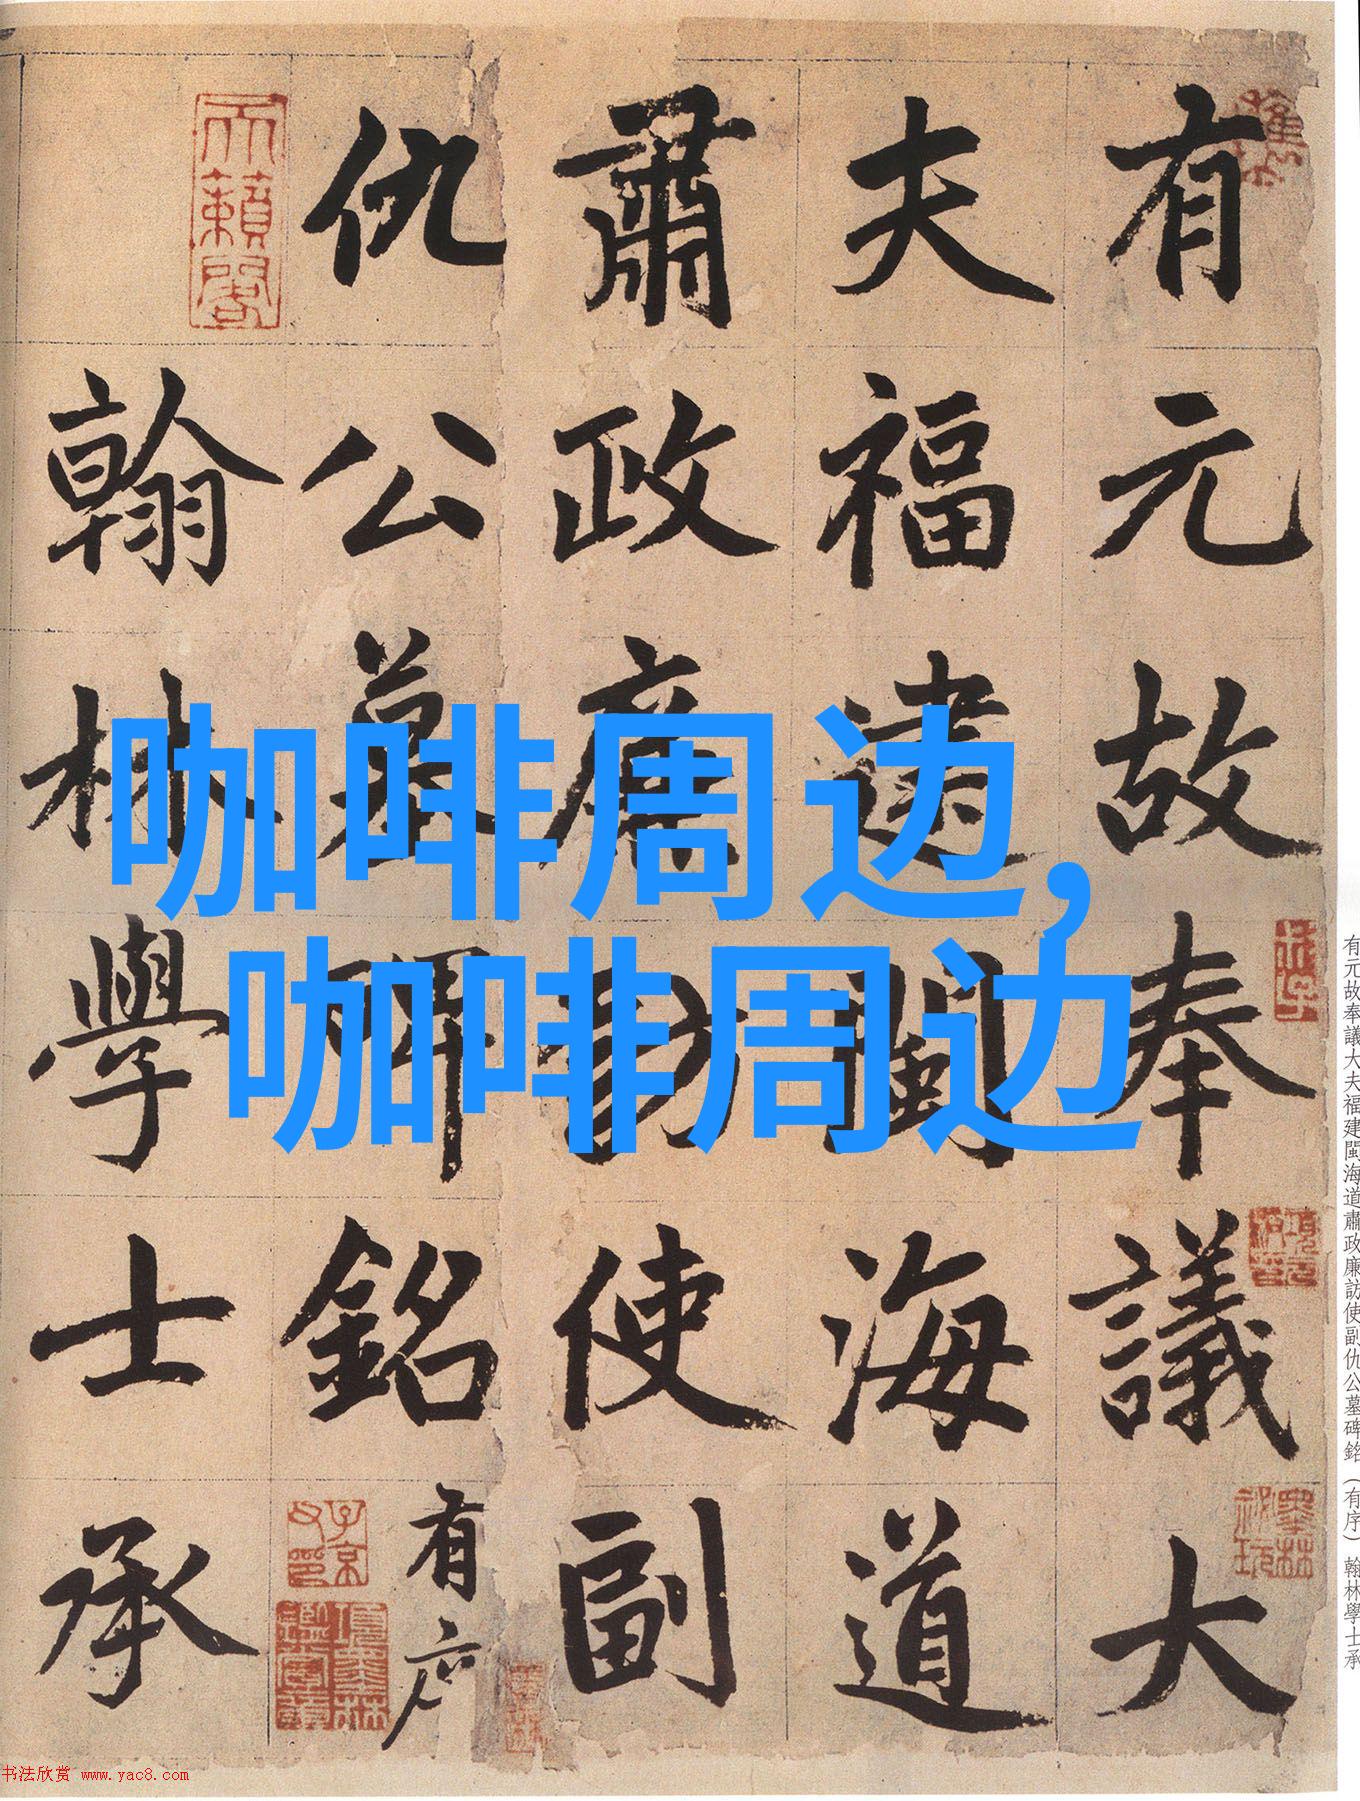 有元故奉議大
夫福建閩海道
肅政廉訪使副
仇公墓碑銘有序
翰林學士承
天籟閣
子京父印
項元汴印
墨林祕玩
咖啡周边,
咖啡周边
有元故奉議大夫福建閩海道肅政廉訪使副仇公墓碑銘(有序) 翰林學士承
书法欣赏 www.yac8.com